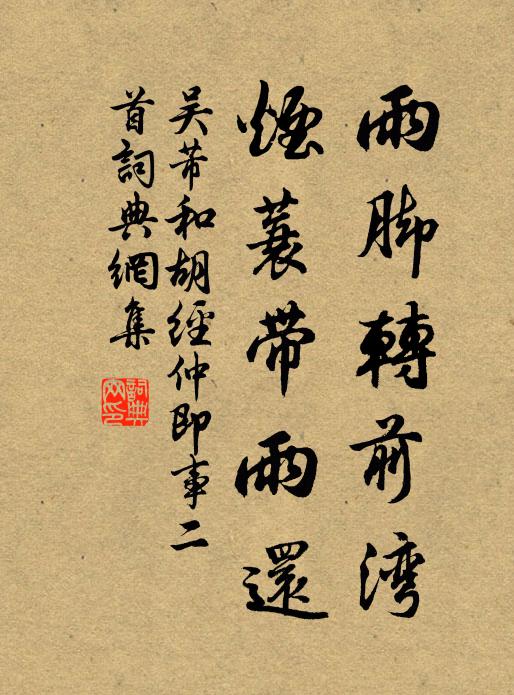 雨脚轉前湾
煙蓑帶雨還
吳芾和胡經仲即事二
首詞典網集